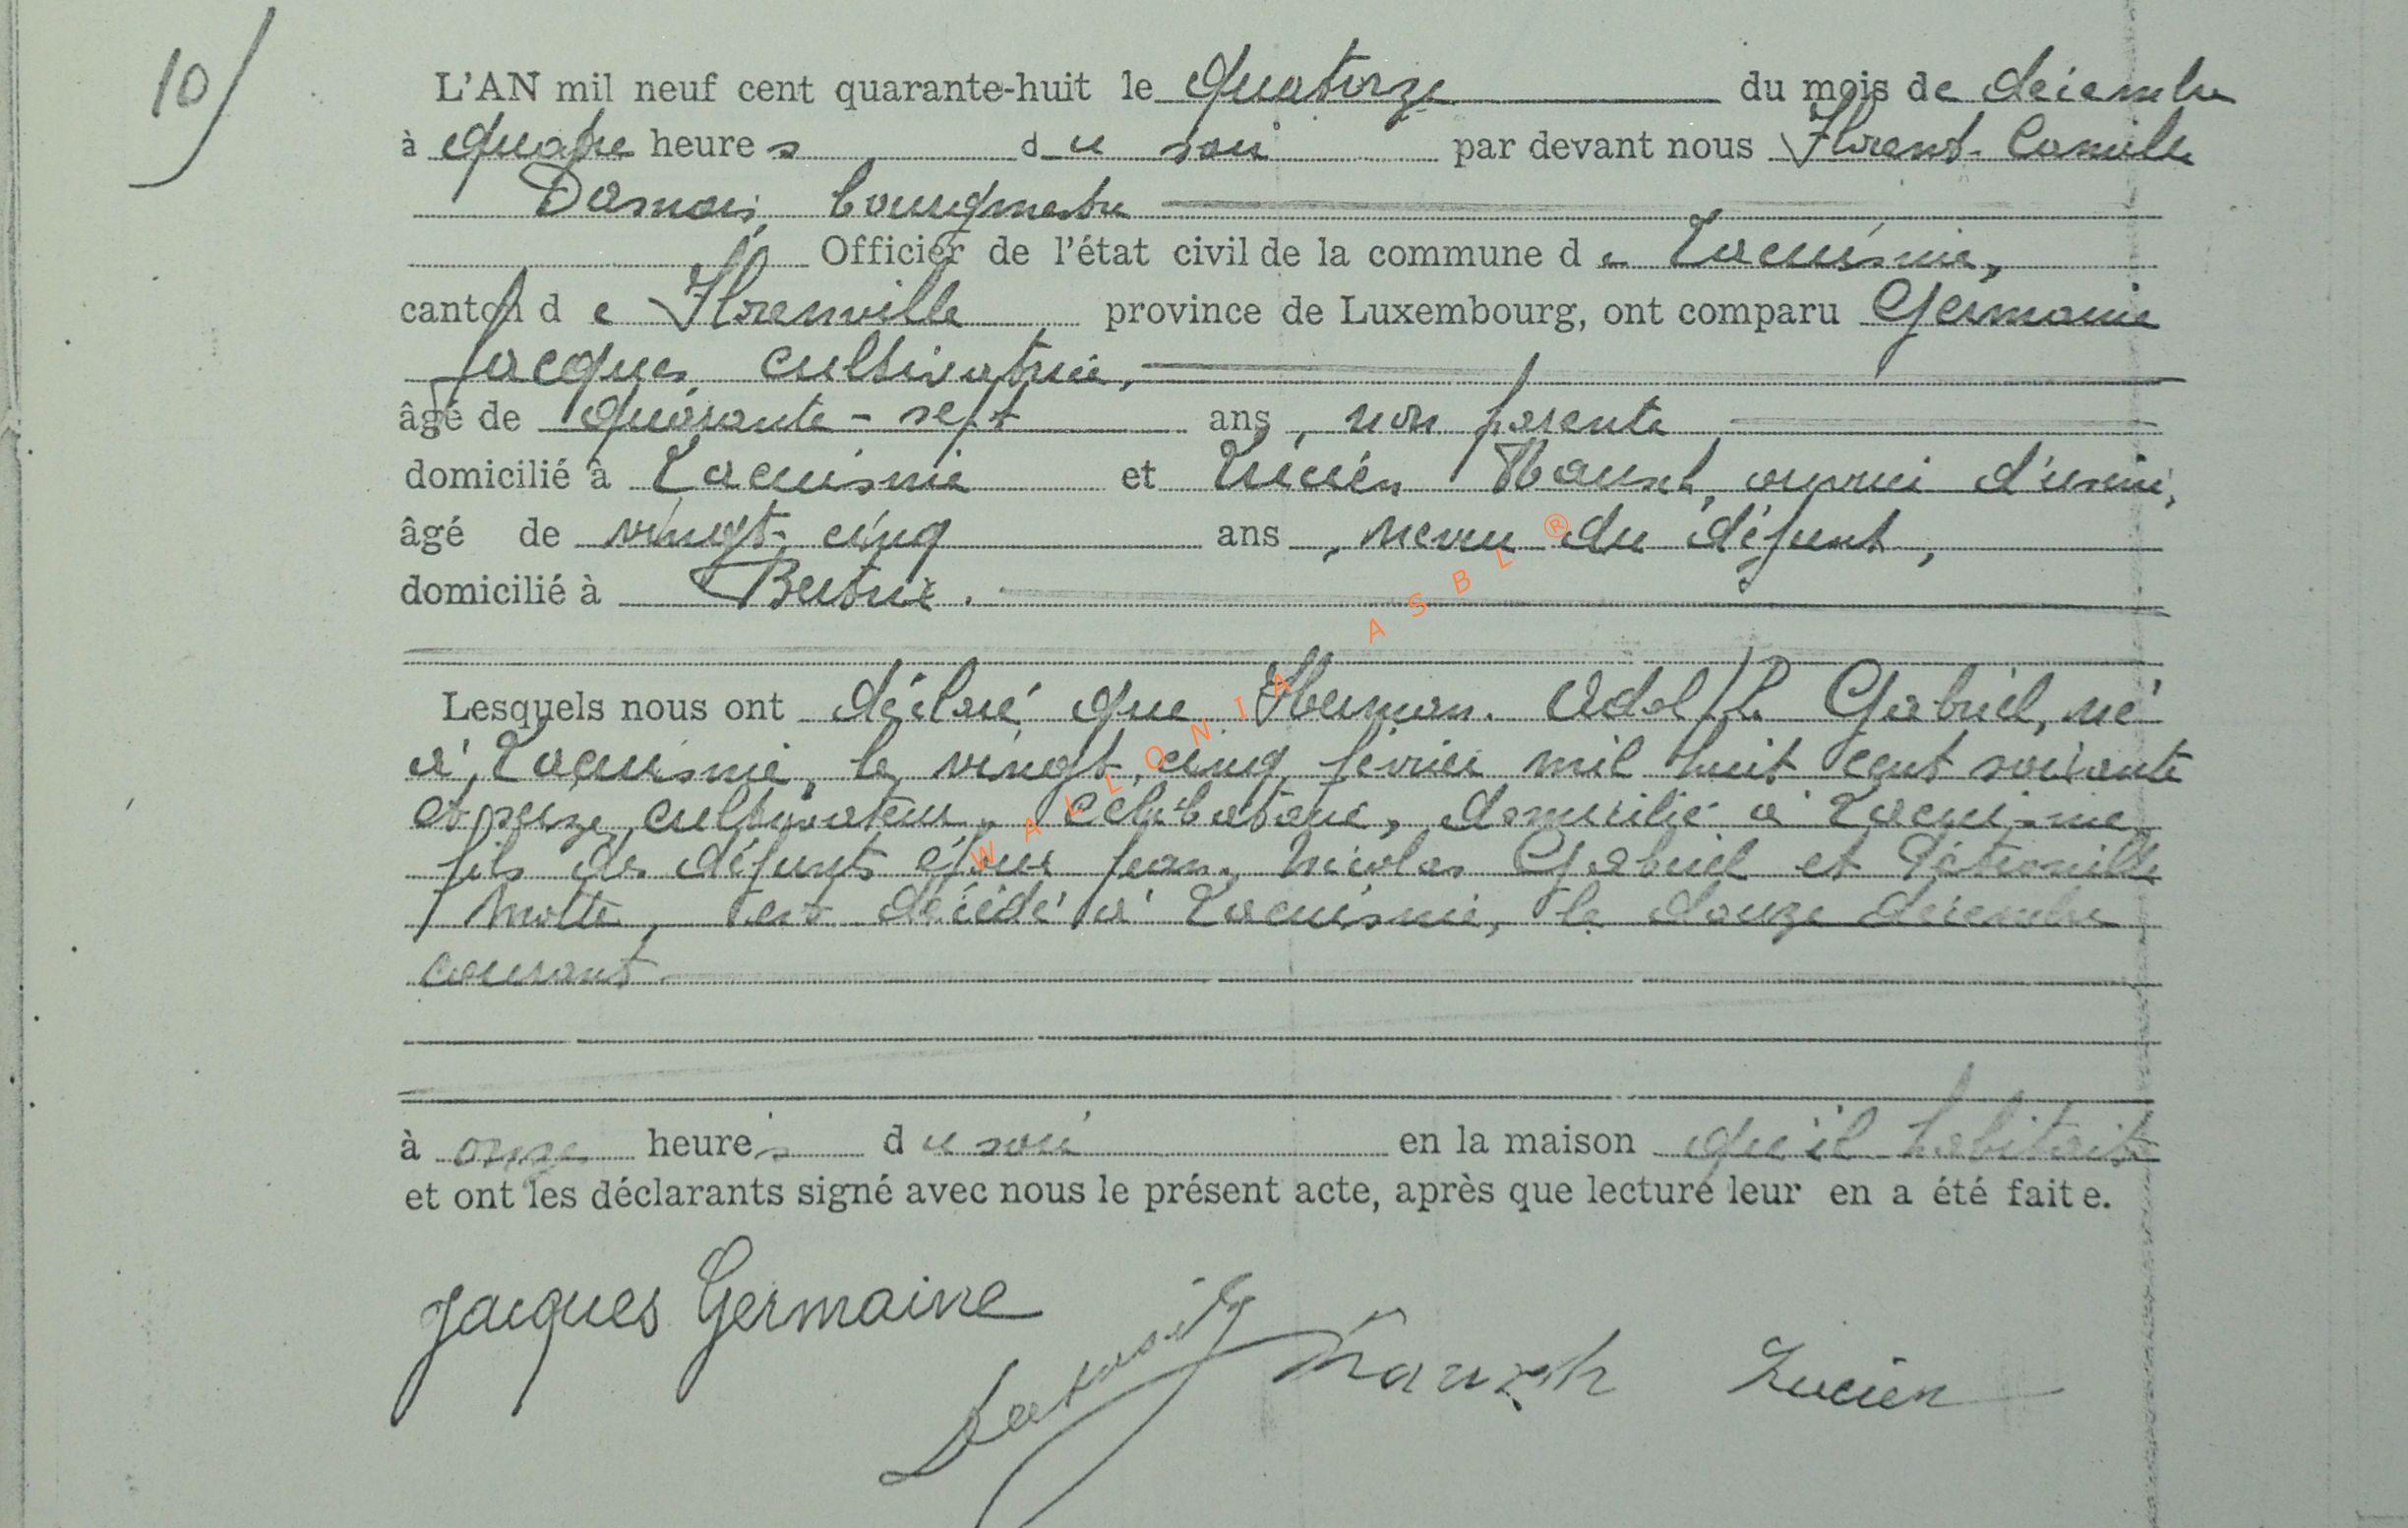 10/
L'AN mil neuf cent quarante-huit le quatorze du mois de décembre
à quatre heures du soir par devant nous Florent-Camille
Damois, bourgmestre
Officier de l'état civil de la commune de Lacuisine,
canton de Florenville province de Luxembourg, ont comparu Germaine
Jacques, cultivatrice,
âgé de quarante-sept ans, non parente
domicilié à Lacuisine et Lucien, ouvrier d'usine,
âgé de vingt-cinq ans, neveu du défunt,
domicilié à Bertrix.
Lesquels nous ont déclaré que Herman-Adolphe Gabriel, né
à Lacuisine, le vingt-cinq février mil huit cent soixante
et seize, cultivateur, célibataire, domicilié à Lacuisine,
fils des défunts époux Jean-Nicolas Gabriel et Pétronille
Motte, est décédé à Lacuisine, le douze décembre
courant
à onze heures du soir en la maison qu'il habitait
et ont les déclarants signé avec nous le présent acte, après que lecture leur en a été faite.
Jacques Germaine
Lucien
WALLONIA ASBL ®